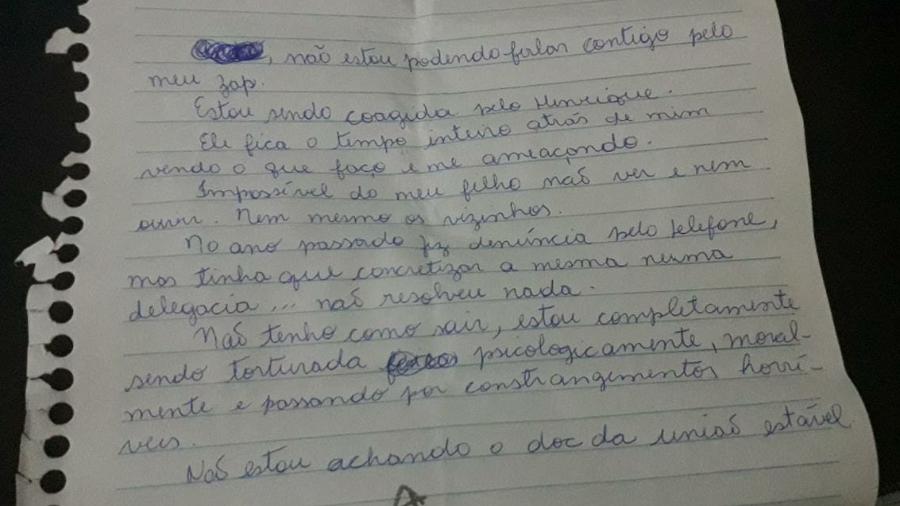 , não estou podendo falar contigo pelo
meu zap.
Estou sendo coagida pelo Henrique.
Ele fica o tempo inteiro atrás de mim
vendo o que faço e me ameaçando.
Impossível do meu filho não ver e nem
ouvir. Nem mesmo os vizinhos.
No ano passado fiz denúncia pelo telefone,
mas tinha que concretizar a mesma numa
delegacia... não resolveu nada.
Não tenho como sair, estou completamente
sendo torturada psicologicamente, moral-
mente e passando por constrangimentos horrí-
veis.
Não estou achando o doc da união estável